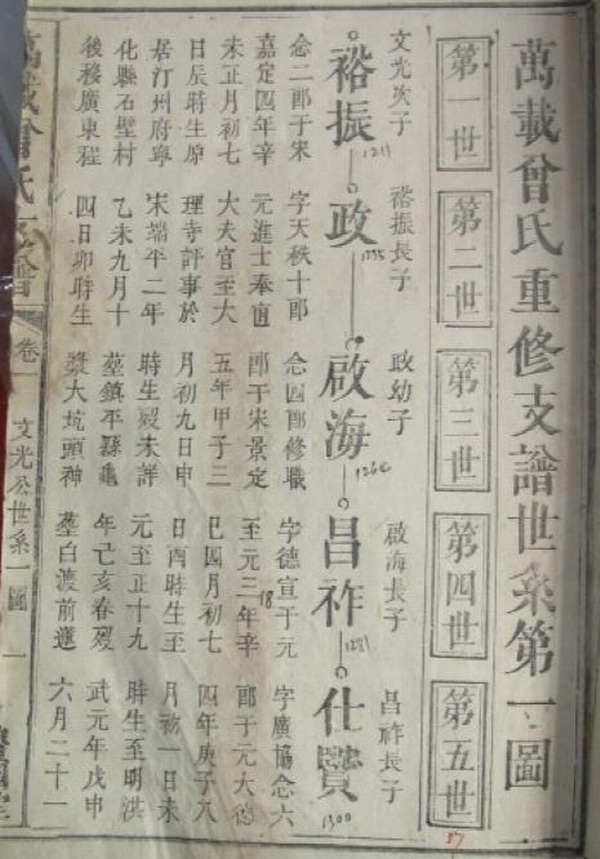 萬載曾氏重修支譜世系第一圖
第一世
第二世
第三世
第四世
第五世
文光次子
裕振
1211
念二郎于宋
嘉定四年辛
未正月初七
日辰時生原
居汀州府寧
化縣石壁村
後移廣東程
裕振長子
政
1235
字天秩十郎
元進士奉直
大夫官至大
理寺評事於
宋端平二年
乙未九月十
四日卯時生
政幼子
啟海
1264
念四郎修職
郎于宋景定
五年甲子三
月初九日申
時生歿未詳
墓鎮平縣龜
漿大坑頭神
啟海長子
昌祚
1281
字德宣于元
至元三年辛
18
巳四月初七
日酉時生至
元至正十九
年己亥春歿
墓白渡前運
昌祚長子
仕贒
1300
字廣協念六
郎于元大德
四年庚子八
月初一日未
時生至明洪
武元年戊申
六月二十一
17
萬載曾氏
卷
文光公世系一圖
一